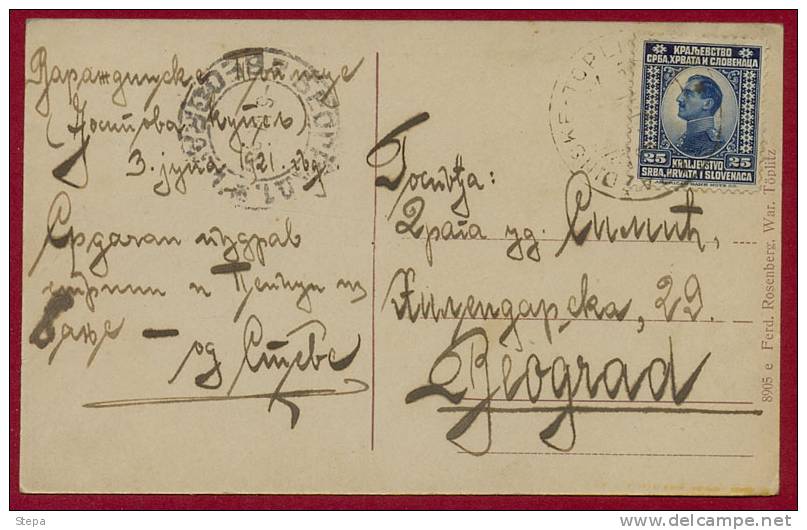 Вараждинске Топлице
3. јула 1921. год.
Срдачан поздрав
стрини и Пепици из
Бање –
од Стеве
Госпођа:
Драга уд. Симић,
Хилендарска, 29.
Beograd
КРАЉЕВСТВО
СРБА, ХРВАТА И СЛОВЕНАЦА
25 KRALJEVSTVO 25
SRBA, HRVATA I SLOVENACA
8905 e Ferd. Rosenberg, War. Töplitz
Stepa
delcampe.net